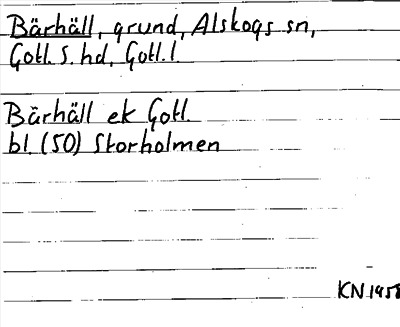 Bärhäll, grund, Alskogs sn,
Gotl. S. hd, Gotl. l.
Bärhäll ek Gotl.
bl. (50) Storholmen
KN 1958